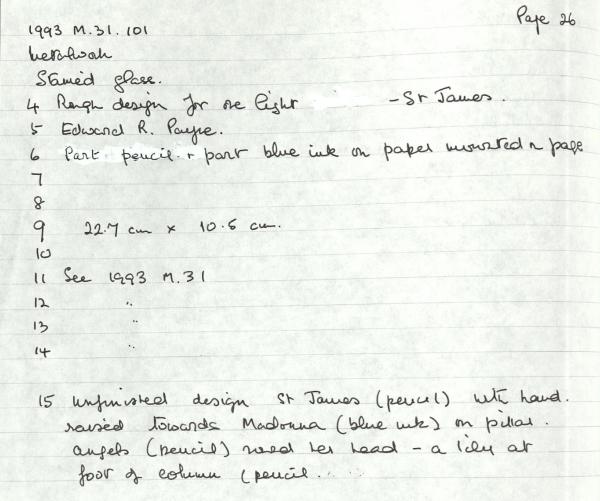 Page 26
1993 M.31.101
Stained glass.
4 Rough design for one light - St James.
5 Edward R. Payne.
6 Part pencil + part blue ink on paper mounted on page
7
8
9 22.7 cm × 10.6 cm.
10
11 See 1993 M.31
12 "
13 "
14 "
15 unfinished design St James (pencil) with hand.
raised towards Madonna (blue ink) on pillar.
angels (pencil) round her head - a lily at
foot of column (pencil...